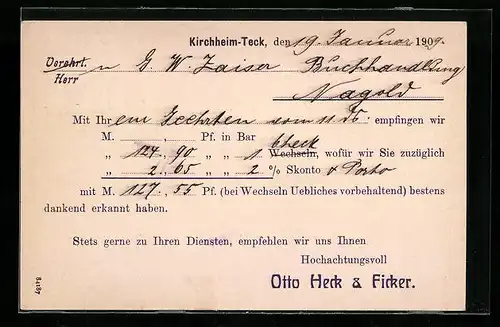 Kirchheim-Teck, den 19. Januar 1909.
Verehrl. G. W. Zaiser Buchhandlung
Herr
Nagold
Mit Ihr em Geehrten vom 11. ds. empfingen wir
M. , Pf. in Bar
check
„ 124, 90 „ „ 1 Wechseln, wofür wir Sie zuzüglich
„ 2, 65 „ „ 2 % Skonto & Porto
mit M. 127, 55 Pf. (bei Wechseln Uebliches vorbehaltend) bestens
dankend erkannt haben.
Stets gerne zu Ihren Diensten, empfehlen wir uns Ihnen
Hochachtungsvoll
Otto Heck & Ficker.